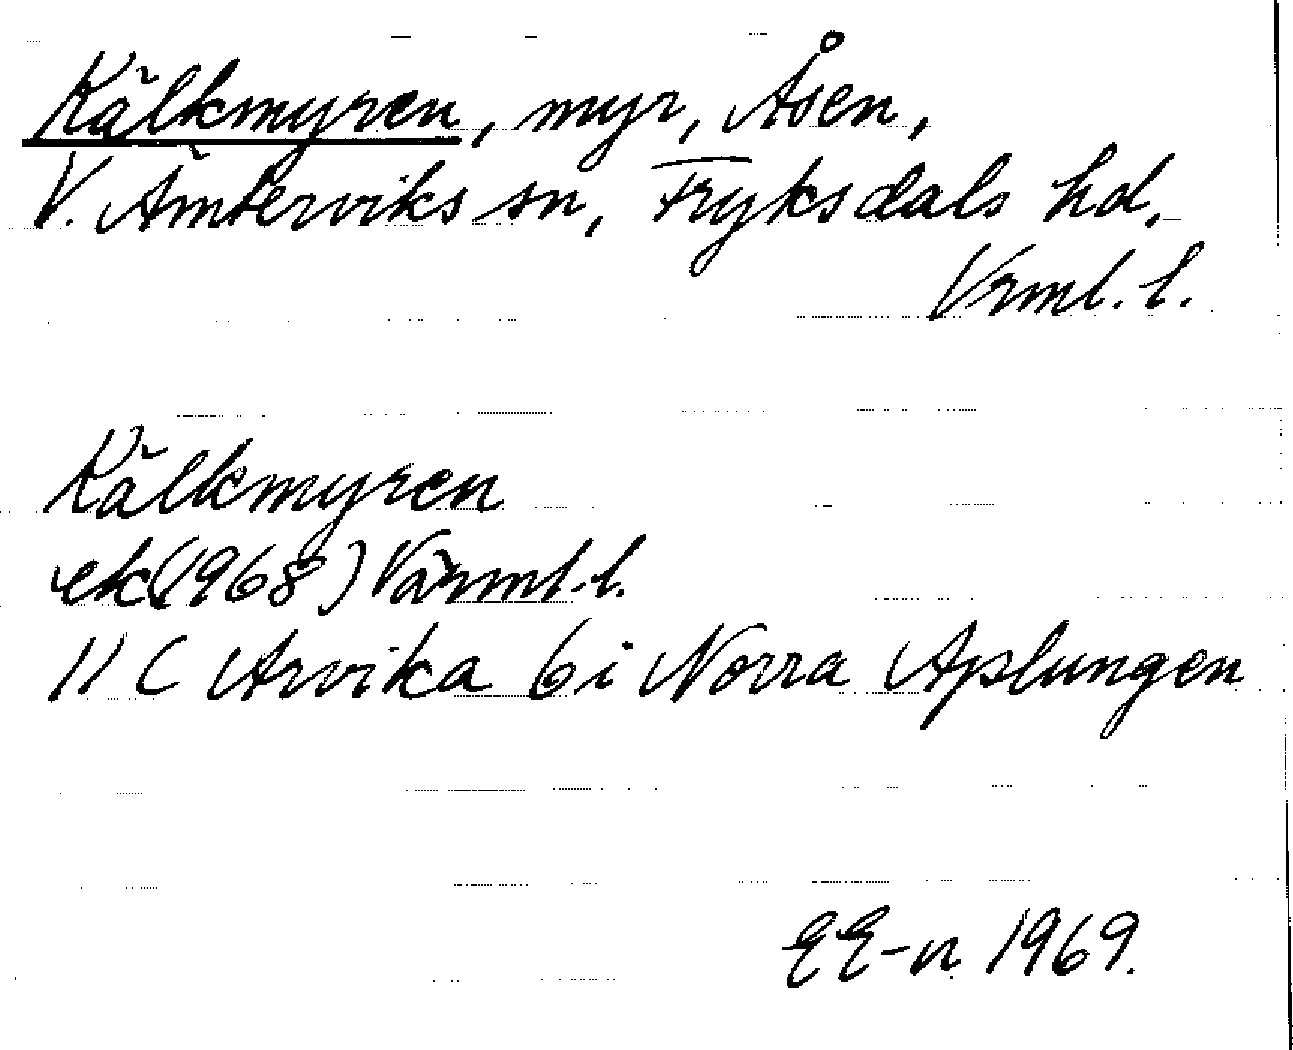 Kälkmyren, myr, Åsen,
V. Ämterviks sn, Fryksdals hd,
Vrml. l.
Kälkmyren
ek (1968) Värml. l.
11 C Arvika 6i Norra Aplungen
EE-n 1969.